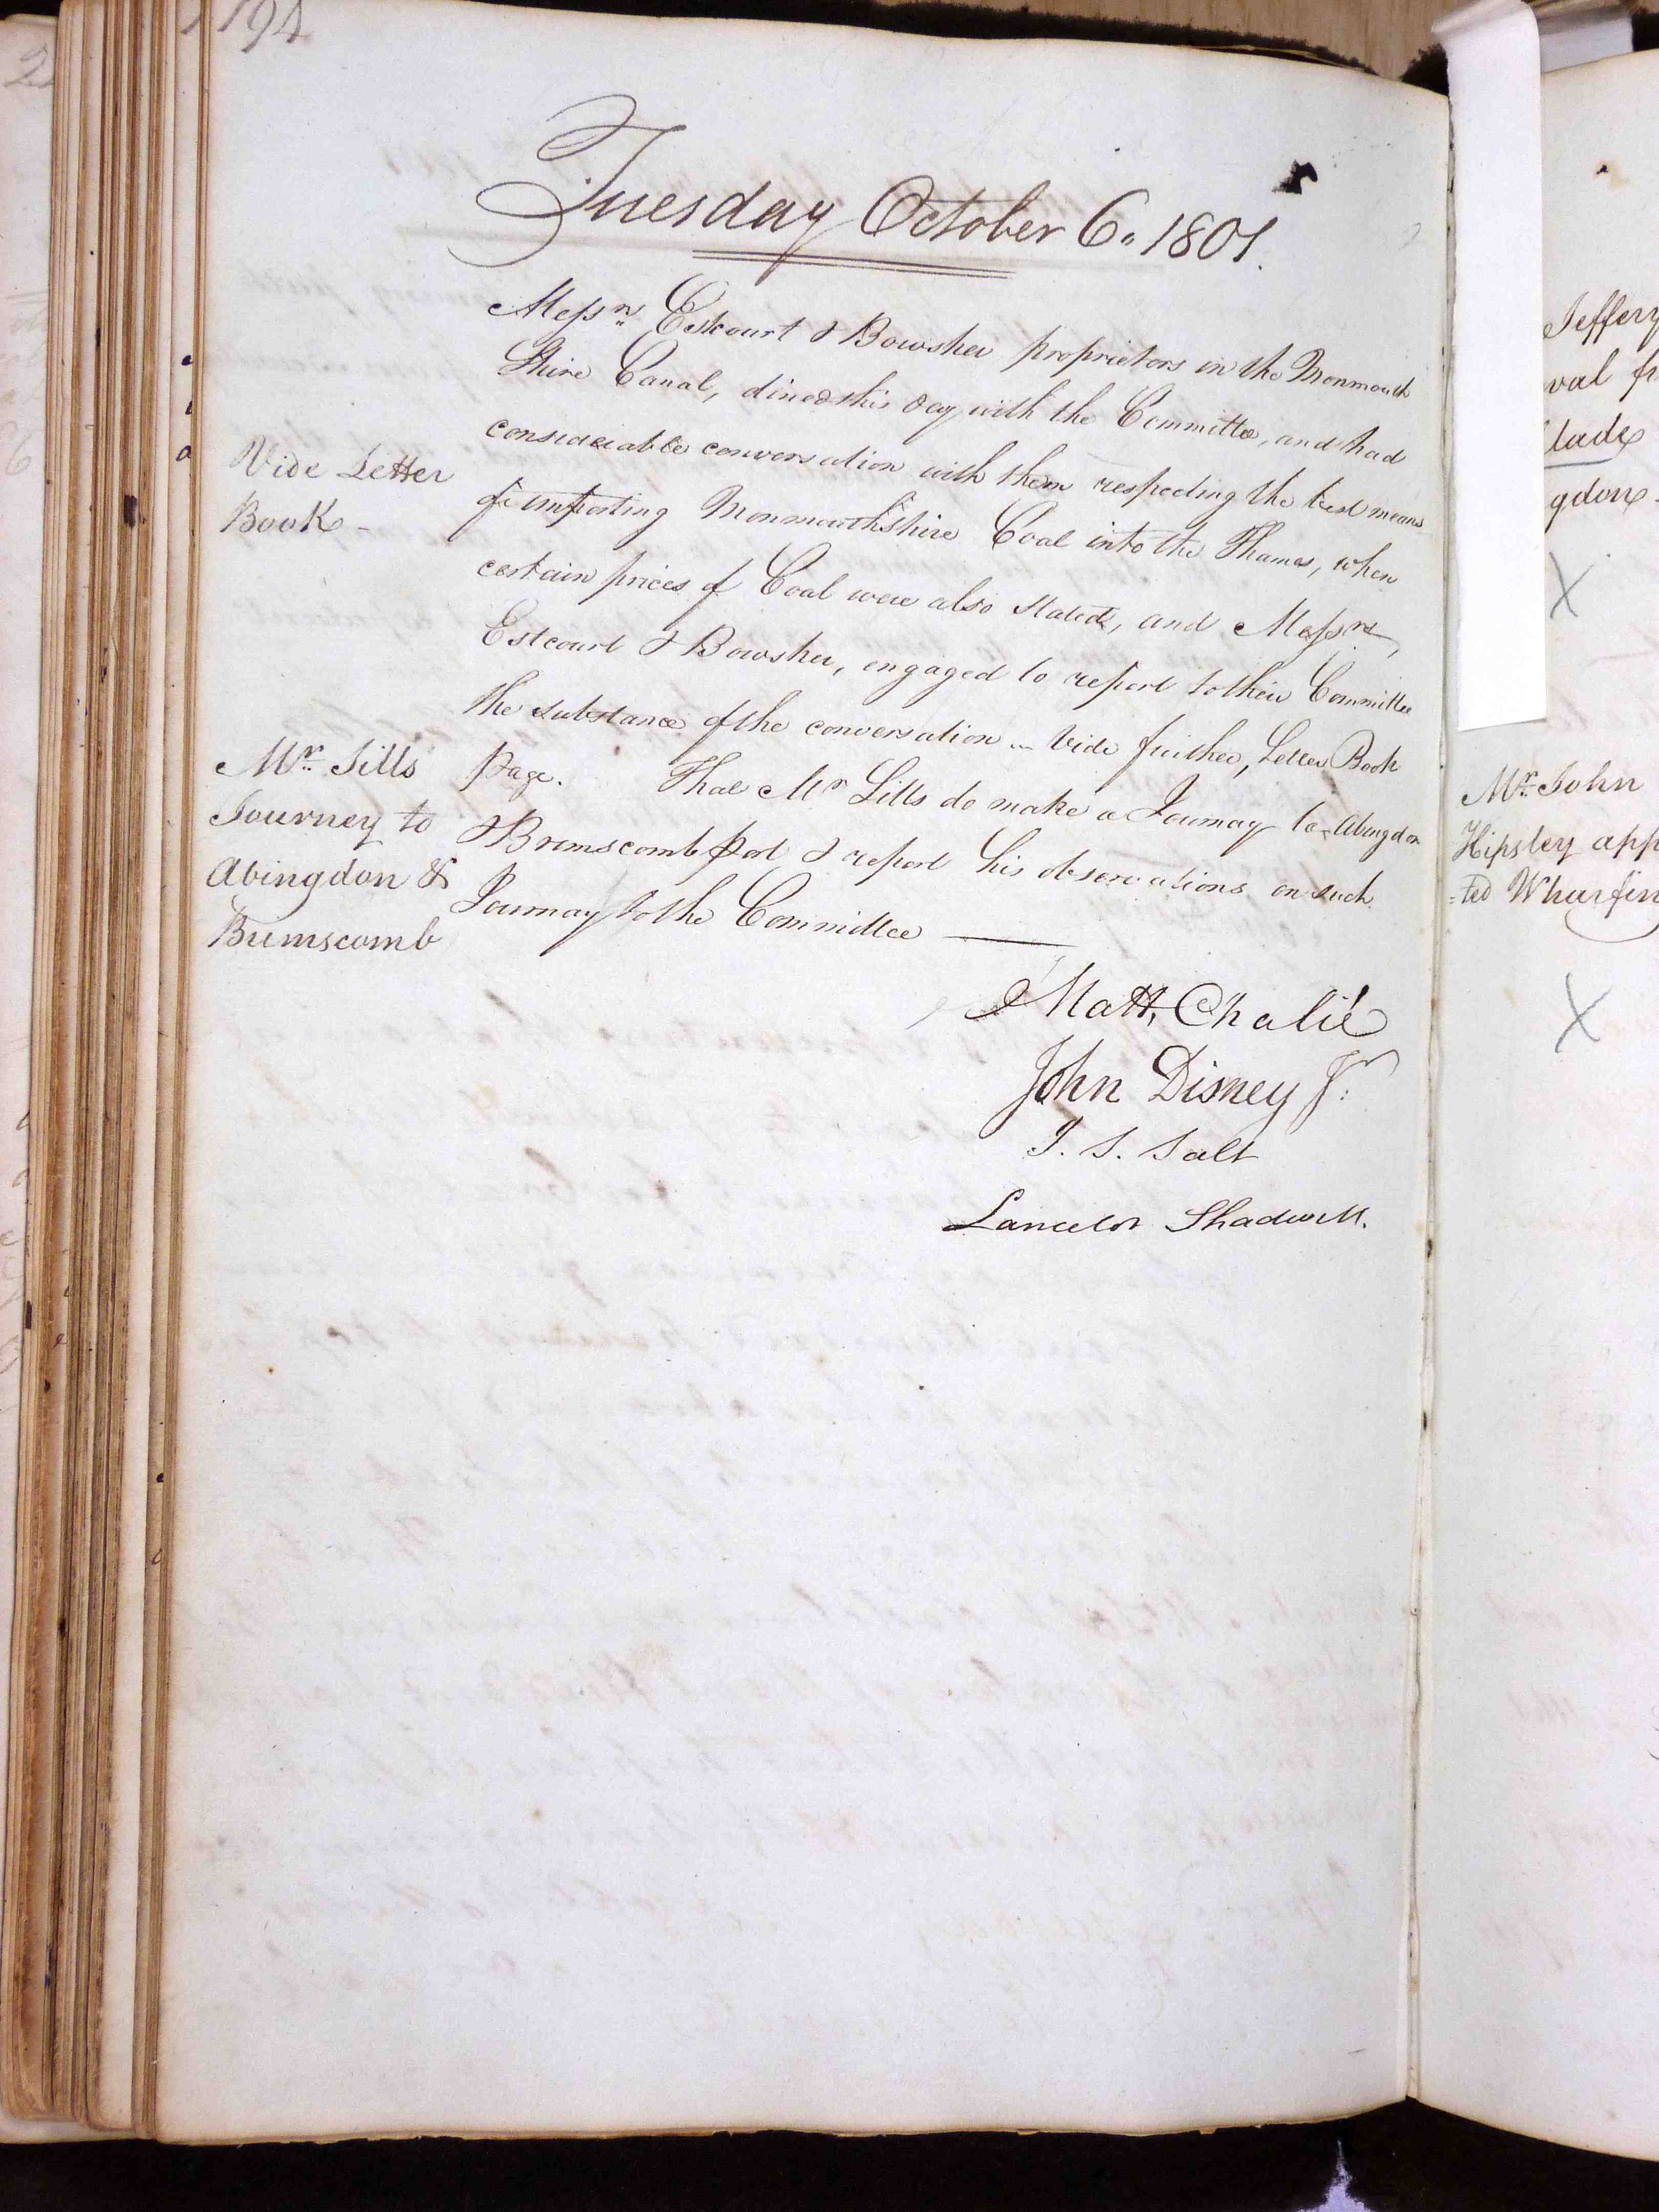 194
Tuesday October 6. 1801.
Messrs Estcourt & Bowsher proprietors in the Monmouth
Shire Canal, dined this day with the Committee, and had
considerable conversation with them respecting the best means
of importing Monmouthshire Coal into the Thames, when
certain prices of Coal were also Stated, and Messrs
Estcourt & Bowsher, engaged to report to their Committee
the substance of the conversation – Vide further, Letter Book
Page. That Mr Sills do make a Journay to Abingdon
& Brimscomb Port & report his observations on such
Journay to the Committee
Vide Letter
Book -
Mr Sills
Journey to
Abingdon &
Brimscomb
Matt, Chalié
John Disney Jr
J. S. Salt
Lancelot Shadwell.
Jeffery
val fr
lade
gdon
X
Mr John
Hipsley app
=ted Wharfin
X